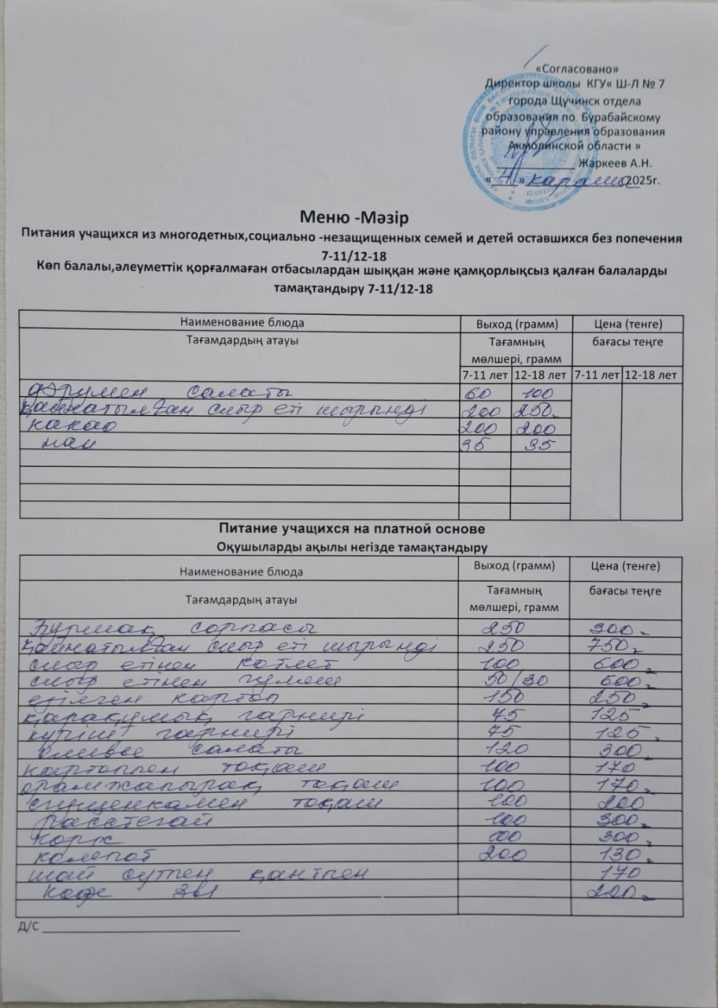 «Согласовано»
Директор школы КГУ« Ш-Л № 7
города Щучинск отдела
образования по Бурабайскому
району управления образования
Акмолинской области »
____________ Жаркеев А.Н.
« » қараша 2025г.
Меню -Мәзір
Питания учащихся из многодетных,социально -незащищенных семей и детей оставшихся без попечения
7-11/12-18
Көп балалы,әлеуметтік қорғалмаған отбасылардан шыққан және қамқорлықсыз қалған балаларды
тамақтандыру 7-11/12-18
Наименование блюда Выход (грамм) Цена (тенге)
Тағамдардың атауы Тағамның мөлшері, грамм бағасы теңге
7-11 лет 12-18 лет 7-11 лет 12-18 лет
дәрумен салаты 60 100
қайнатылған сиыр еті шырынді 200 250
какао 200 200
нан 35 35
Питание учащихся на платной основе
Оқушыларды ақылы негізде тамақтандыру
Наименование блюда Выход (грамм) Цена (тенге)
Тағамдардың атауы Тағамның мөлшері, грамм бағасы теңге
сорпасы 250 300
қайнатылған сиыр еті шырынді 250 750
сиыр етінен котлет 100 600
сиыр етінен гуляш 50/30 600
езілген картоп 150 250
қарақұмық гарнирі 75 125
күріш гарнирі 75 125
салаты 120 300
картоппен тоқаш 100 170
орамжапырақ тоқаш 100 170
тоқаш 100 200
расстегай 100 300
корж 100 300
компот 200 130
шай сүтпен қантпен 170
кофе 3в1 220
Д/С